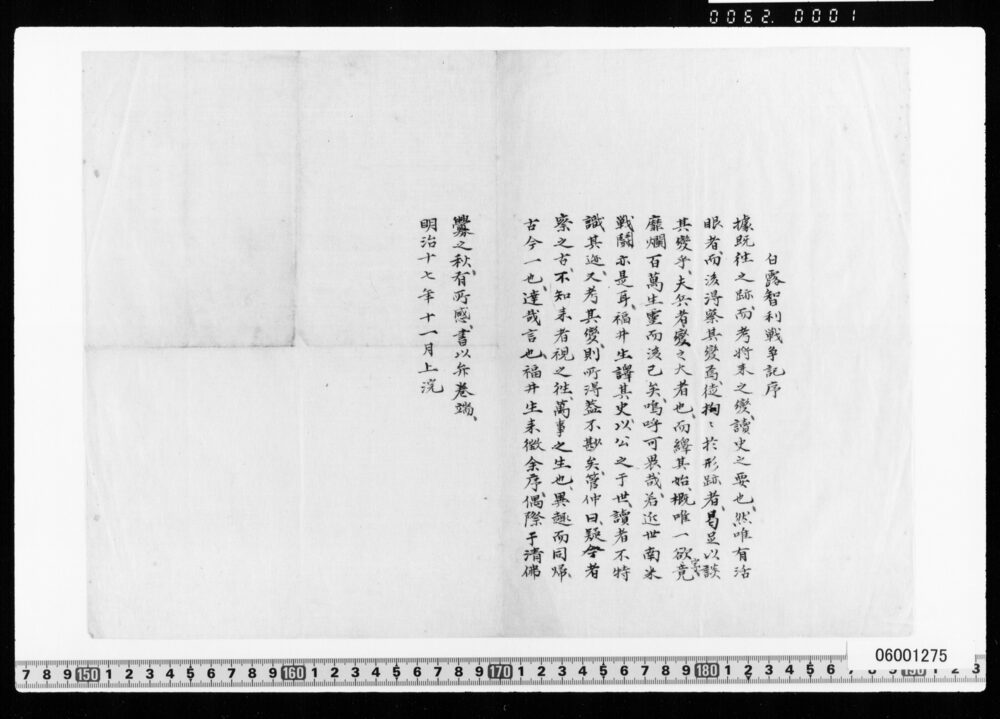 0062.0001
白露智利戰爭記序
據既徃之跡、而考將来之變、讀史之要也、然唯有活
眼者、而後得察其變焉、徒拘〻於形跡者、曷足以談
其變乎、夫兵者變之大者也、而繹其始、概唯一欲竟
靡爛百萬生靈而後已矣、嗚呼可畏哉、若近世南米
戰鬪亦是耳、福井生譯其史、以公之于世、讀者不特
識其迹、又考其變、則所得蓋不尠矣、管仲曰、疑今者
察之古、不知来者視之徃、萬事之生也、異趣而同歸、
古今一也、達哉言也、福井生来徴余序、偶際于清佛
釁之秋、有所感、書以弁卷端、
明治十七年十一月上浣
06001275
7 8 9 150 1 2 3 4 5 6 7 8 9 160 1 2 3 4 5 6 7 8 9 170 1 2 3 4 5 6 7 8 9 180 1 2 3 4 5 6 7 8 9 190 1 2 3